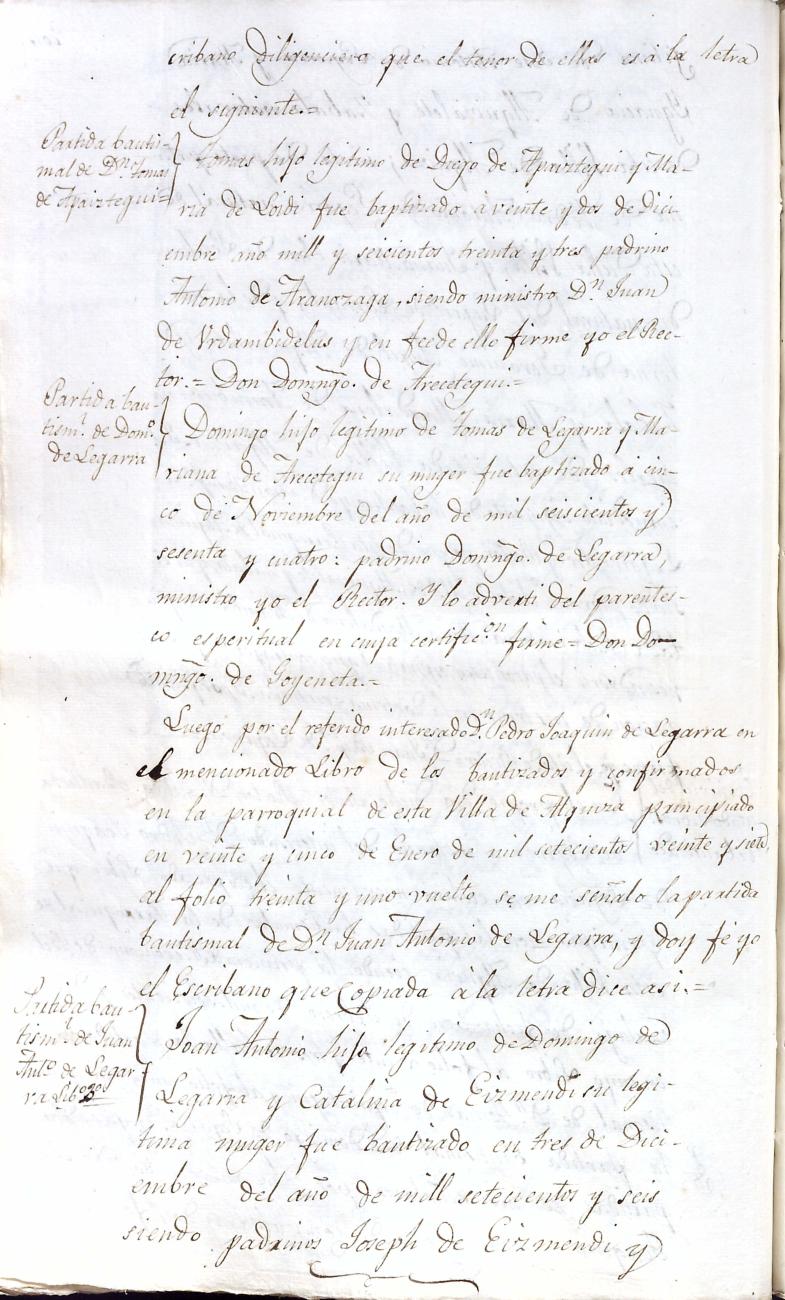 cribano diligenciero que el tenor de ellas es â la letra
el siguiente.=
Partida bautis-
mal de Dn. Tomas
de Apaiztegui=
Tomas hijo legitimo de Diego de Apaiztegui y Ma-
ria de Loidi fue baptizado â veinte y dos de Dici-
embre año mill y seicientos treinta y tres padrino
Antonio de Aranozaga, siendo ministro Dn. Juan
de Vrdambidelus y en fee de ello firme yo el Rec-
tor.= Don Domingo. de Arecetegui.=
Partida bau-
tisml. de Domo.
de Legarra
Domingo hijo legitimo de Tomas de Legarra y Ma-
riana de Arecetegui su muger fue baptizado â cin-
co de Noviembre del año de mil seiscientos y
sesenta y cuatro: padrino Domingo. de Legarra,
ministro yo el Rector. Y lo adverti del parentes-
co esperitual en cuya certific.on firme= Don Do-
mingo. de Goyeneta.=
Luego por el referido interesado Dn. Pedro Joaquin de Legarra en
el mencionado Libro de los bautizados y confirmados
en la parroquial de esta Villa de Alquiza principiado
en veinte y cinco de Enero de mil setecientos veinte y siete,
al folio treinta y uno vuelto se me señalo la partida
bautismal de Dn. Juan Antonio de Legarra, y doy fé yo
el Escribano que Copiada â la letra dice asi.=
Partida bau-
tisml. de Juan
Anto. de Legar-
ra Lib.o 2o
Joan Antonio hijo legitimo de Domingo de
Legarra y Catalina de Eizmendi su legi-
tima muger fue bautizado en tres de Dici-
embre del año de mill setecientos y seis
siendo padrinos Joseph de Eizmendi y